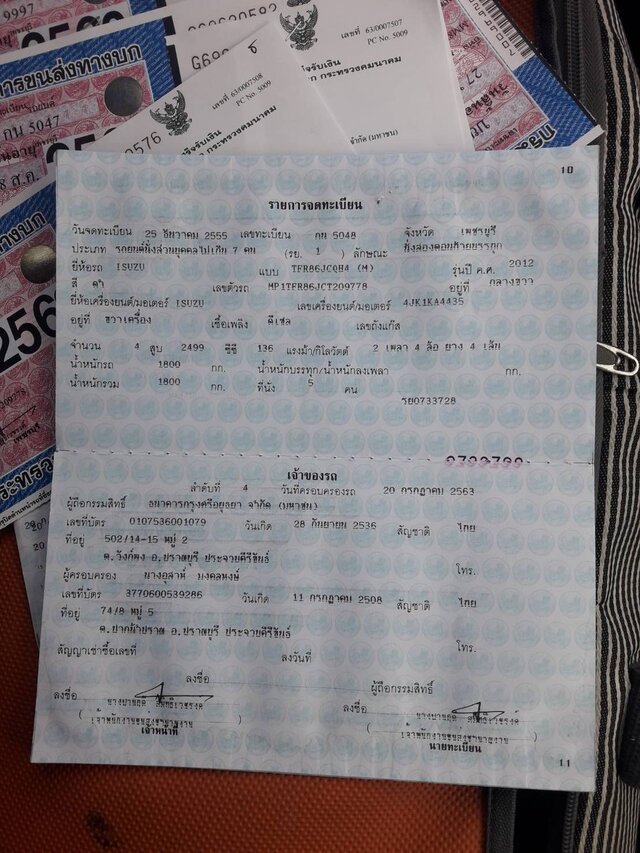 9997
G6
เลขที่ 63/0007507
PC No. 5009
การขนส่งทางบก
กน 5047
เลขที่ 63/0007508
PC No. 5009
จำกัด (มหาชน)
256
10
รายการจดทะเบียน
วันจดทะเบียน 25 ธันวาคม 2555 เลขทะเบียน กน 5048 จังหวัด เพชรบุรี
ประเภท รถยนต์นั่งส่วนบุคคลไม่เกิน 7 คน (รย. 1) ลักษณะ นั่งสองตอนท้ายบรรทุก
ยี่ห้อรถ ISUZU แบบ TFR86JCQH4 (M) รุ่นปี ค.ศ. 2012
สี ดำ เลขตัวรถ MP1TFR86JCT209778 อยู่ที่ กลางขวา
ยี่ห้อเครื่องยนต์/มอเตอร์ ISUZU เลขเครื่องยนต์/มอเตอร์ 4JK1KA4435
อยู่ที่ ขวาเครื่อง เชื้อเพลิง ดีเซล เลขถังแก๊ส
จำนวน 4 สูบ 2499 ซีซี 136 แรงม้า/กิโลวัตต์ 2 เพลา 4 ล้อ ยาง 4 เส้น
น้ำหนักรถ 1800 กก. น้ำหนักบรรทุก/น้ำหนักลงเพลา กก.
น้ำหนักรวม 1800 กก. ที่นั่ง 5 คน
รย0733728
เจ้าของรถ
ลำดับที่ 4 วันที่ครอบครองรถ 20 กรกฎาคม 2563
ผู้ถือกรรมสิทธิ์ ธนาคารกรุงศรีอยุธยา จำกัด (มหาชน)
เลขที่บัตร 0107536001079 วันเกิด 28 กันยายน 2536 สัญชาติ ไทย
ที่อยู่ 502/14-15 หมู่ 2
ต.วังก์พง อ.ปราณบุรี ประจวบคีรีขันธ์ โทร.
ผู้ครอบครอง นางอุสาห์ มงคลหงษ์
เลขที่บัตร 3770600539286 วันเกิด 11 กรกฎาคม 2508 สัญชาติ ไทย
ที่อยู่ 74/8 หมู่ 5
ต.ปากน้ำปราณ อ.ปราณบุรี ประจวบคีรีขันธ์ โทร.
สัญญาเช่าซื้อเลขที่ ลงวันที่
ลงชื่อ ผู้ถือกรรมสิทธิ์
ลงชื่อ ลงชื่อ
(เจ้าพนักงานขนส่งชำนาญงาน) (เจ้าพนักงานขนส่งชำนาญงาน)
เจ้าหน้าที่ นายทะเบียน
11